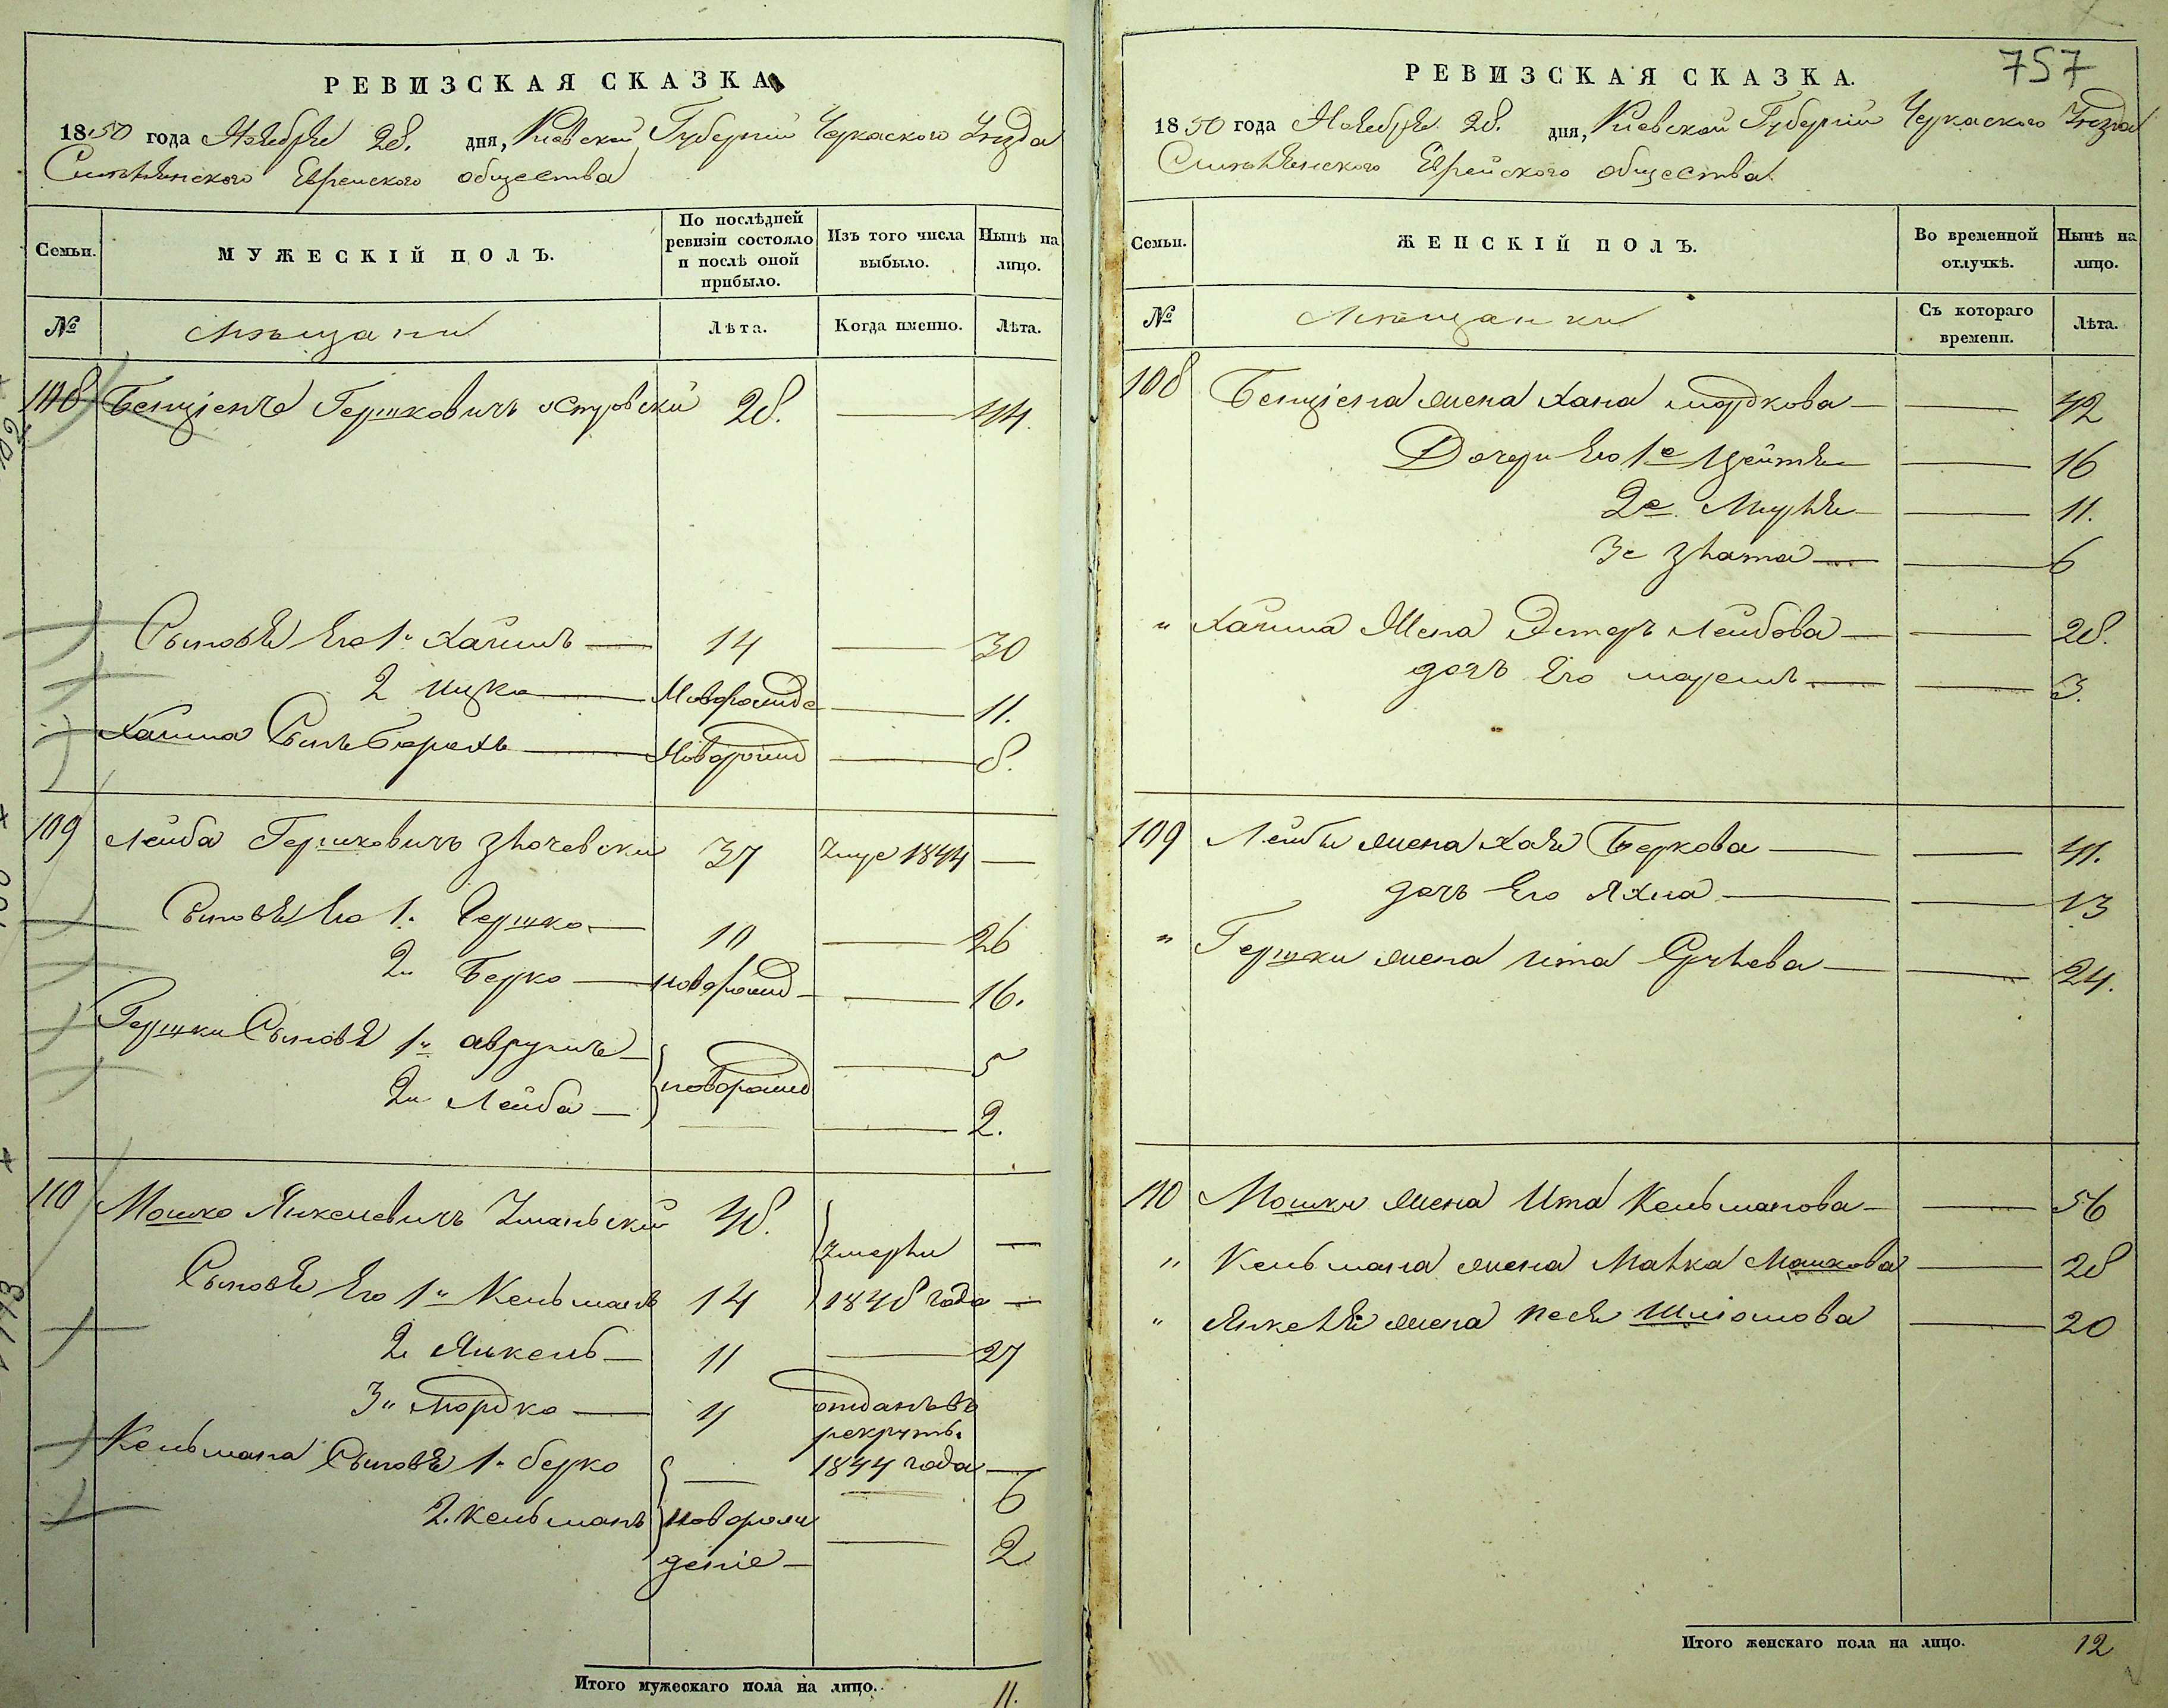 РЕВИЗСКАЯ СКАЗКА
1850 года Ноября 28. дня, Киевской Губернии Черкаского Уезда
Еврейского общества
Семьи.
МУЖЕСКІЙ ПОЛЪ.
По послѣдней ревизіи состояло и послѣ оной прибыло.
Изъ того числа выбыло.
Нынѣ на лицо.
№
мѣщани
Лѣта.
Когда именно.
Лѣта.
108 Бенціонъ Гершковичъ Островски 28. — 44.
Сыновья Его 1й Хаимъ — 14 — 30
2 Ицко — Новорожде — 11.
Хаима Сынъ Борехъ — Новорожд — 8.
109 Лейба Гершковичъ Злочевски 37 Умре 1844 —
Сыновья Его 1. Гершко — 10 — 26
2й Берко — новорожд — 16.
Гершки Сыновя 1й аврумъ — новорожд — 5
2й Лейба — 2.
110 Мошко Янкелевичъ Уманьский 48. умерли —
Сыновья Его 1й Кельманъ 14 1848 года —
2. Янкель — 11 — 27
3й Мордко — 4 отданъ въ
рекруты
1844 года —
Кельмана Сыновя 1й берко — 6
2. Кельманъ новорож — 2
деніе —
Итого мужескаго пола на лицо. 11.
757
РЕВИЗСКАЯ СКАЗКА.
1850 года Ноября 28. дня, Киевской Губернии Черкаского Уезда
Еврейского общества
Семьи.
ЖЕНСКІЙ ПОЛЪ.
Во временной отлучкѣ.
Нынѣ на лицо.
№
Мѣщанки
Съ котораго времени.
Лѣта.
108 Бенціона жена Хана мордкова — 42
Дочери Его 1е Цейтля — 16
2е Мирля — 11.
3е Злата — 6
" Хаима Жена Эстеръ Лейбова — 28.
дочъ Его маремъ — 3.
109 Лейбы жена Хая Беркова — 41.
дочъ Его Яхна — 13
" Гершки жена Ита Срулева — 24.
110 Мошки жена Ита Кельманова — 56
" Кельмана жена Малка Мошкова — 28
" Янкеля жена Песя Шліомова — 20
Итого женскаго пола на лицо. 12